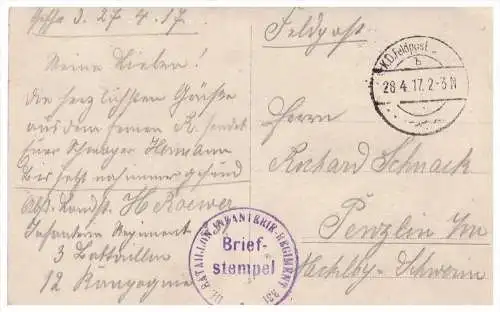 d. 27.4.17.
Meine Lieben!
Die herzlichsten Grüße
aus dem fernen R. sendet
Euer Schwager Hermann
Bis jetzt noch immer gesund
Abs. Landst. H Roewer
Infanterie Regiment
3 Battaillon
12 Kompagnie
Feldpost
K.D.Feldpost
b
28.4.17.2-3N
Herrn
Richard Schnack
Penzlin i/m
Mecklbg-Schwerin
BATAILLON INFANTERIE-REGIMENT
Brief-
stempel